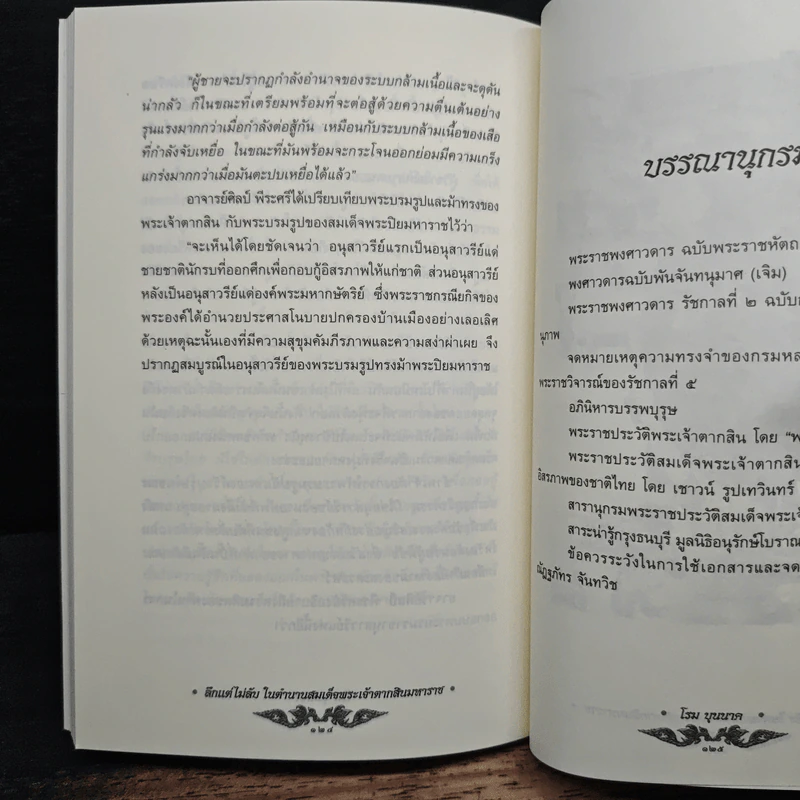 “ผู้ชายจะปรากฏกำลังอำนาจของระบบกล้ามเนื้อและจะดุดัน
น่ากลัว ก็ในขณะที่เตรียมพร้อมที่จะต่อสู้ด้วยความตื่นเต้นอย่าง
รุนแรงมากกว่าเมื่อกำลังต่อสู้กัน เหมือนกับระบบกล้ามเนื้อของเสือ
ที่กำลังจับเหยื่อ ในขณะที่มันพร้อมจะกระโจนออกย่อมมีความเกร็ง
แกร่งมากกว่าเมื่อมันตะปบเหยื่อได้แล้ว”
อาจารย์ศิลป์ พีระศรีได้เปรียบเทียบพระบรมรูปและม้าทรงของ
พระเจ้าตากสิน กับพระบรมรูปของสมเด็จพระปิยมหาราชไว้ว่า
“จะเห็นได้โดยชัดเจนว่า อนุสาวรีย์แรกเป็นอนุสาวรีย์แด่
ชายชาตินักรบที่ออกศึกเพื่อกอบกู้อิสรภาพให้แก่ชาติ ส่วนอนุสาวรีย์
หลังเป็นอนุสาวรีย์แด่องค์พระมหากษัตริย์ ซึ่งพระราชกรณียกิจของ
พระองค์ได้อำนวยประศาสโนบายปกครองบ้านเมืองอย่างเลอเลิศ
ด้วยเหตุฉะนั้นเองที่มีความสุขุมคัมภีรภาพและความสง่าผ่าเผย จึง
ปรากฏสมบูรณ์ในอนุสาวรีย์ของพระบรมรูปทรงม้าพระปิยมหาราช
• ลึกแต่ไม่ลับ ในตำนานสมเด็จพระเจ้าตากสินมหาราช •
๑๒๔
บรรณานุกรม
พระราชพงศาวดาร ฉบับพระราชหัตถ
พงศาวดารฉบับพันจันทนุมาศ (เจิม)
พระราชพงศาวดาร รัชกาลที่ ๒ ฉบับ
นุภาพ
จดหมายเหตุความทรงจำของกรมหล
พระราชวิจารณ์ของรัชกาลที่ ๕
อภินิหารบรรพบุรุษ
พระราชประวัติพระเจ้าตากสิน โดย “พ
พระราชประวัติสมเด็จพระเจ้าตากสิน
อิสรภาพของชาติไทย โดย เชาวน์ รูปเทวินทร์
สารานุกรมพระราชประวัติสมเด็จพระเจ้
สาระน่ารู้กรุงธนบุรี มูลนิธิอนุรักษ์โบราณ
ข้อควรระวังในการใช้เอกสารและจด
ณัฏฐภัทร จันทวิช
• โรม บุนนาค •
๑๒๕